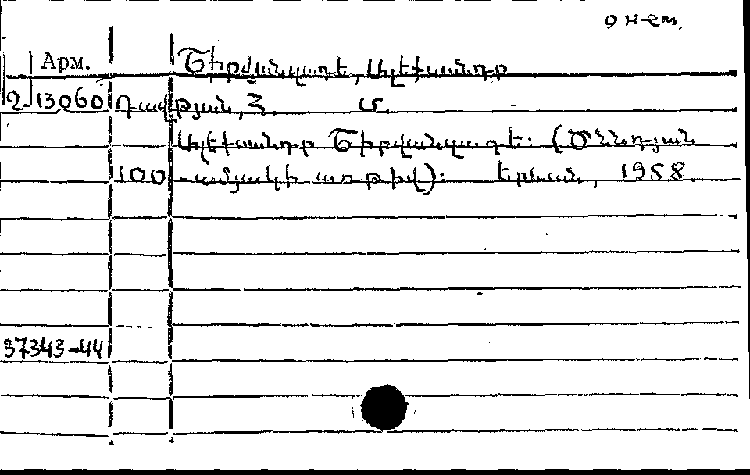 Арм.
Շիրվանզադե, Ալեքսանդր
2 13060 Դավթյան, Հ. Մ.
Ալեքսանդր Շիրվանզադե: (Ծննդյան
100-ամյակի առթիվ): Երևան, 1958.
37343-44